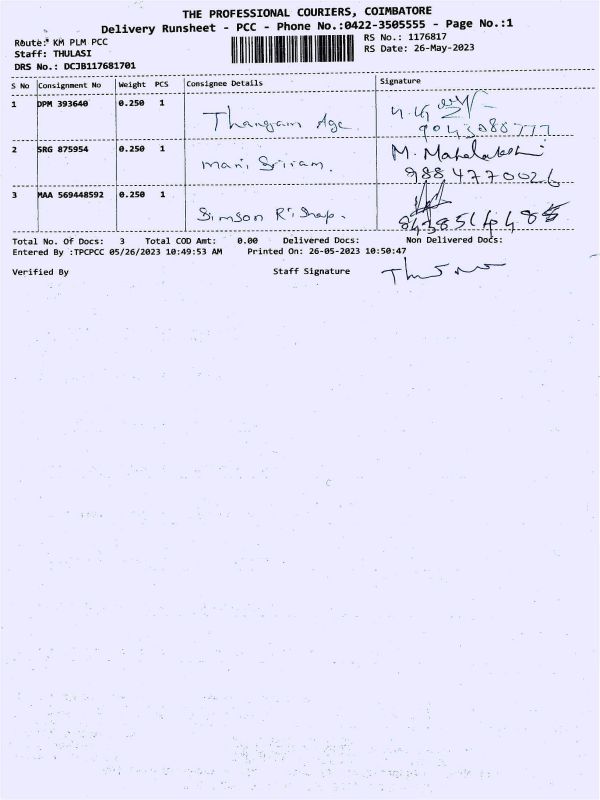 THE PROFESSIONAL COURIERS, COIMBATORE
Delivery Runsheet - PCC - Phone No.:0422-3505555 - Page No.:1
Route: KM PLM PCC
RS No.: 1176817
Staff: THULASI
RS Date: 26-May-2023
DRS No.: DCJB117681701
S No Consignment No Weight PCS Consignee Details Signature
1 DPM 393640 0.250 1
Thangam Age
9043088777
2 SRG 875954 0.250 1 M. Mahalakshmi
Mani Sriram. 9884770026
3 MAA 569448592 0.250 1
Simson Rishap.
Total No. Of Docs: 3 Total COD Amt: 0.00 Delivered Docs: Non Delivered Docs:
Entered By :TPCPCC 05/26/2023 10:49:53 AM Printed On: 26-05-2023 10:50:47
Verified By Staff Signature